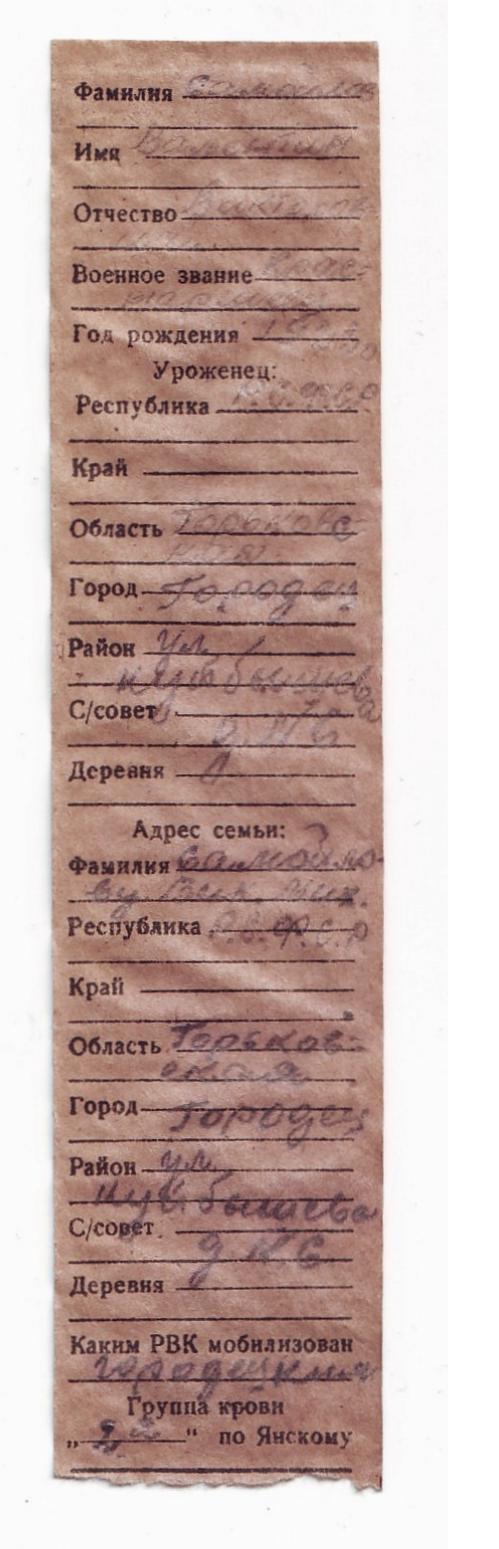 Фамилия Самойлов
Имя Валентин
Отчество Викторов
Военное звание Крас-
ноармеец
Год рождения 1923
Уроженец:
Республика Р.С.Ф.С.Р
Край
Область Горьковс-
кая
Город Городец
Район ул.
Куйбышева
С/совет
д.
Деревня
Адрес семьи:
Фамилия Самойло-
ву Вик.
Республика Р.С.Ф.С.Р
Край
Область Горьков-
ская
Город Городец
Район ул.
Куйбышева
С/совет
д
Деревня
Каким РВК мобилизован
Городецким
Группа крови
„ “ по Янскому